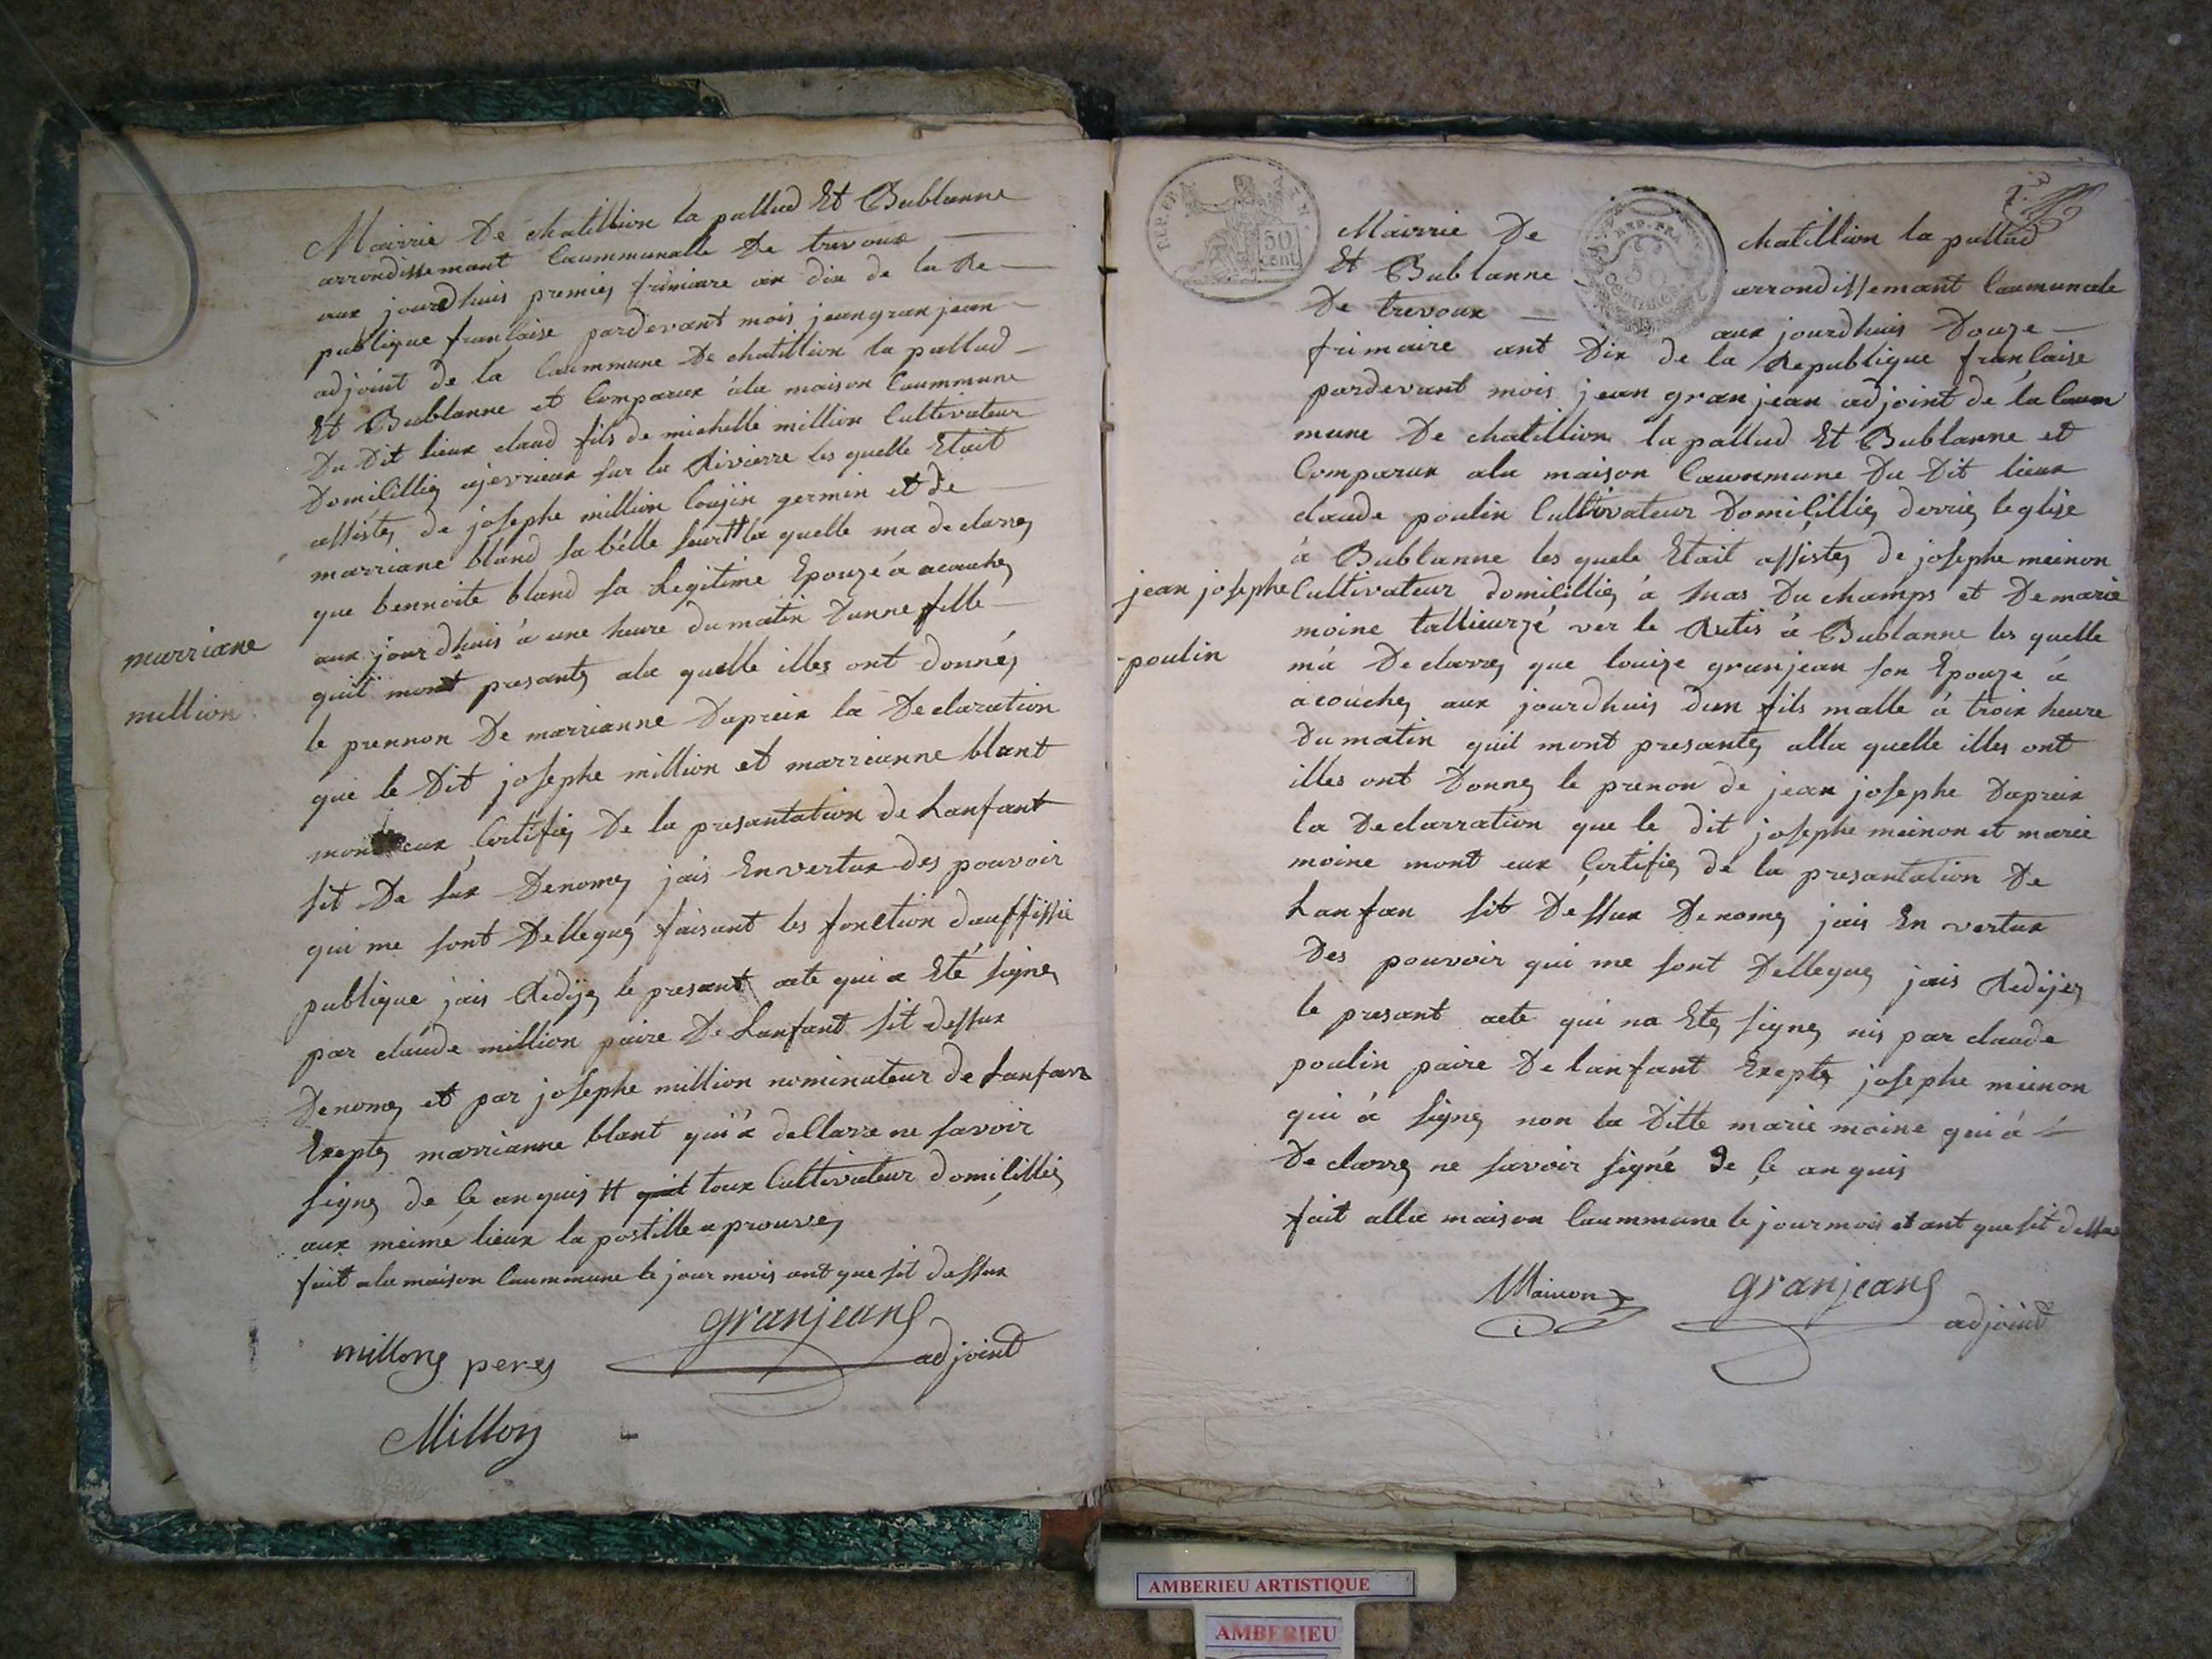 Mairrie De chatillion la pallud Et Bublanne
arrondissemant Caummunalle De trevoux
aux jourdhuis premiez frimaire an dix de la Re
publique franCaise pardevant mois jean granjean
adjoint de la Caummune De chatillion la pallud
Et Bublanne et Comparux àla maison Caummune
Du Dit lieux claud fils de michelle million Cultivateur
Domicilliez ajevrieux sur la Rivierre les quelle Etait
assistez de josephe million Coujin germin et de
marriane bland sa bélle seur # la quelle ma declarez
que bennoite bland sa Legitime Epouze à acouchez
aux jourdhuis à une heure du matin Dunne fille
quil mont presantez ala quelle illes ont donnéz
le prennon De marrianne Dapreix la Declaration
que le Dit josephe million et marrianne blant
mont eux Certifiez De la presantation de Lanfant
sit De sux Denomez jais En vertux des pouvoir
qui me sont Delleguez faisant les fonction dauffissié
publique jais Redijez le presant acte qui a Eté signez
par claude million paire De Lanfant sit dessux
Denomez et par josephe million nominateur de Lanfan
Exeptez marrianne blant qui à dellarre ne savoir
signez de Ce anquis # quit toux Cultivateur domicilliez
aux meimé lieux la postille aprouvez
fait ala maison Caummune le jour mois ant que sit dessux
millong perez
granjeang
adjoint
Millon
marriane
million
REP. FRA
50
cent.
REP. FRA
50
CENTIMES
Mairrie De chatillion la pallud
Et Bublanne arrondissemant Caumunale
De trevoux aux jourdhuis Douze
frimaire ant Dix de la Republique franCaise
pardevant mois jean granjean adjoint de la Caum
mune De chatillion la pallud Et Bublanne et
Comparux ala maison Caummune Du Dit lieux
claude poulin Cultivateur Domicilliez derriez leglise
à Bublanne les quele Etait assistez de josephe meinon
Cultivateur domicilliez à mas Du champs et De marie
moine tallieurzé ver le Rutis à Bublanne les quelle
mà Declarrez que louize granjean son Epouze à
acouchez aux jourdhuis dun fils malle à troix heure
Du matin quil mont presantez alla quelle illes ont
illes ont Donnez le prenon de jean josephe Dapreix
la Declarration que le dit josephe meinon et marie
moine mont eux Certifiez de la presantation De
Lanfan sit Dessux Denomez jais En vertux
Des pouvoir qui me sont Delleguez jais Redijez
le presant acte qui na Etez signez nis par claude
poulin paire De lanfant Exeptez josephe meinon
qui à signez non la Ditte marie moine qui à
De clarrez ne savoir signé de Ce anquis
fait alla maison Caummune le jour mois et ant que sit dessux
Mainon
granjeang
adjoint
jean josephe
poulin
AMBERIEU ARTISTIQUE
AMBERIEU